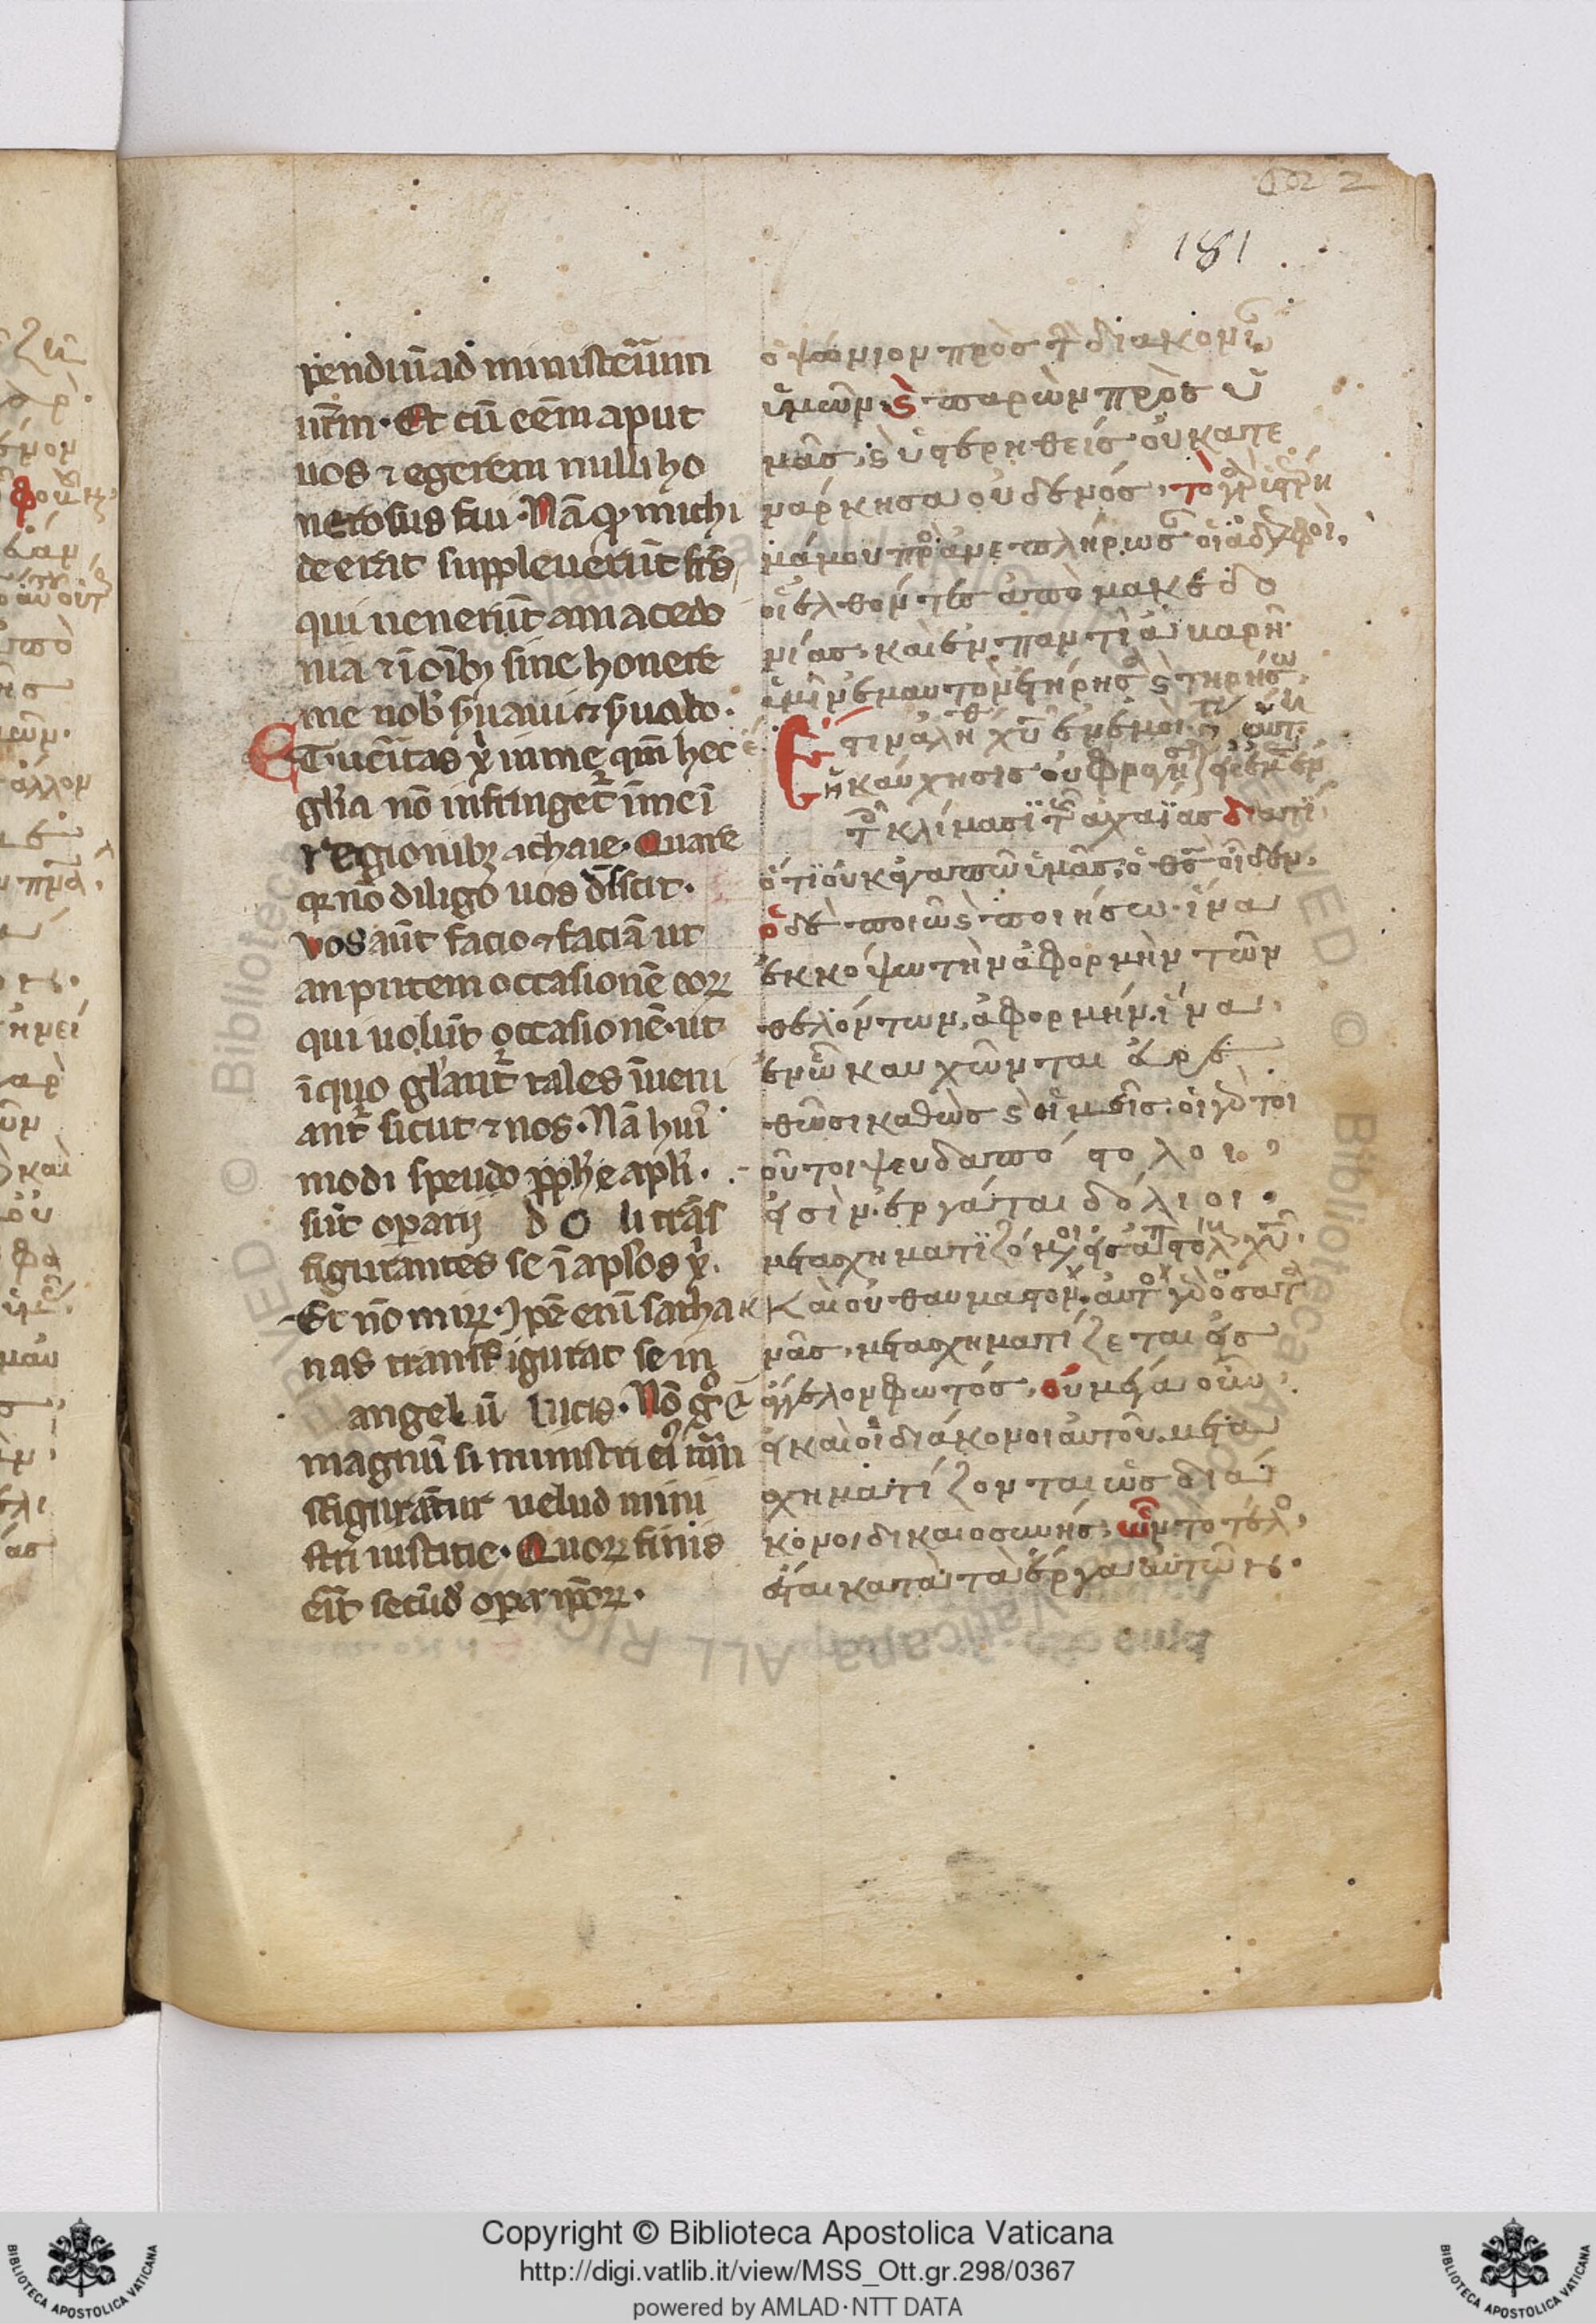 Cor 2
181
pendiū ad ministeriūm
ur̄m · Et cū eēm aput
uos ⁊ egerem nulli ho
nerosus fui · Nā q̵ michi
deerat suppleuerūt fr̄s
qui uenerūt a macedo
nia ⁊ ī oīb; sine honere
me nob̵ s̵uaui ⁊ s̵uabo ·
Et ueritas xp̄i in me qm̄ hec
gl̵ia nō infringet̄ ī me ī
regionib; achaie · Quare
q̵ nō diligo uos d̄s scit ·
vos aūt facio ⁊ faciā ut
amputem occasionē eoꝝ
qui uolūt occasionē · ut
ī quo gl̵iant̄ tales īueni
ant̄ sicut ⁊ nos · Nā hui᾽
modi speudo apl̵i ·
sūt operarij do li trās
figurantes se ī apl̵os xp̄i ·
Et nō miꝝ · Ipē enī satha
nas transfigurat se in
angelū lucis · Nō g̊ ē
magnū si ministri ei᾽ trān
sfigurāntur uelud mini
stri iustitie · Quoꝝ finis
erīt secūd̵ opera ip̄oꝝ ·
ὀψώνιον πρὸς τ̀ διακονί
ὑμῶν · ϛ̀ παρὼν πρὸς ὑ
μᾶς, ϛ̀ ὑστερηθεὶς οὐ κατε
νάρκησα οὐδενός · τὸ γὰρ ὑστέρη
μά μου προσανεπλήρωσ οἱ ἀδελφοὶ,
οἱ ἐλθόντες ἀπὸ μακεδο
νίας · καὶ ἐν παντὶ ἀβαρῆ
ὑμῖν ἐμαυτὸν ἐτήρησ ϛ̀ τηρήσω
Ἔστιν ἀλήθ χῦ ἐν ἐμοὶ, ὅτι
ἡ καύχησις οὐ φραγή εἰς ἐμὲ ἐν
τ̑ κλίμασϊ τ̑ ἀχαΐας διατί
ὅτϊ οὐκ ἀγαπῶ ὑμᾶς, ὁ θς̄ οἶδεν.
ὃ δὲ ποιῶ ϛ̀ ποιήσω · ἵνα
ἐκκόψω τὴν ἀφορμὴν τῶν
θελόντων ἀφορμήν · ἵνα
ἐν ᾧ καυχῶνται εὑρε
θῶσι καθὼς ϛ̀ ἡμεῖς · οἱ γὰρ τοι
οῦτοι ψευδαπόστολοι,
εἰσὶν ἐργάται δόλιοι ·
μετασχηματϊζόμοι εἰς ἀποστόλ χῦ ·
Καὶ οὐ θαυμαστὸν · αὐτ γὰρ ὁ σατα
νᾶς, μετασχηματίζεται εἰς
ἄγγελον φωτός, οὐ μέγα οὖν
εἰ καὶ οἱ διάκονοι αὐτοῦ μετα
σχηματίζονται ὡς διά
κονοι δικαιοσύνης, ὧν τὸ τέλο
ἔσται κατὰ τὰ ἔργα αὐτῶν.
Copyright © Biblioteca Apostolica Vaticana
http://digi.vatlib.it/view/MSS_Ott.gr.298/0367
powered by AMLAD·NTT DATA
BIBLIOTECA APOSTOLICA VATICANA
BIBLIOTECA APOSTOLICA VATICANA